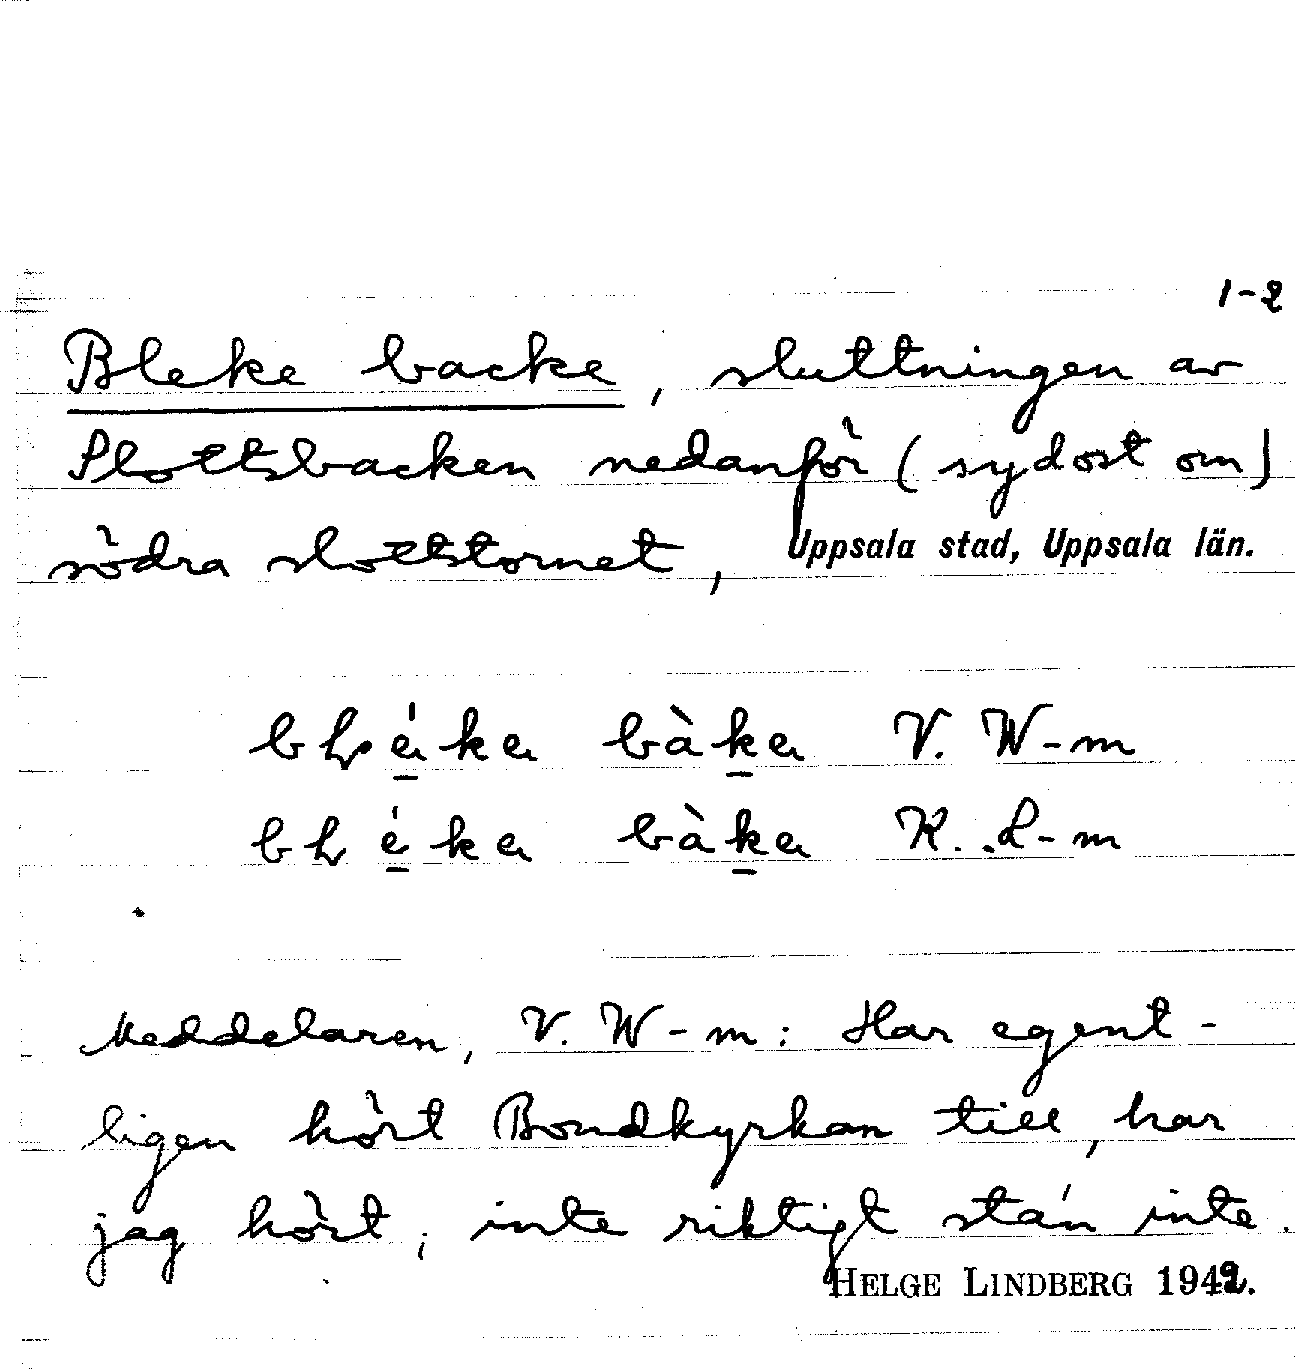 1-2
Bleke backe, sluttningen av
Slottsbacken nedanför (sydost om)
södra slottstornet, Uppsala stad, Uppsala län.
bàka V. W-m
bàka K. L-m
Meddelaren, V. W-m: Har egent-
ligen hört Bondkyrkan till, har
jag hört; inte riktigt stá'n inte.
HELGE LINDBERG 1942.